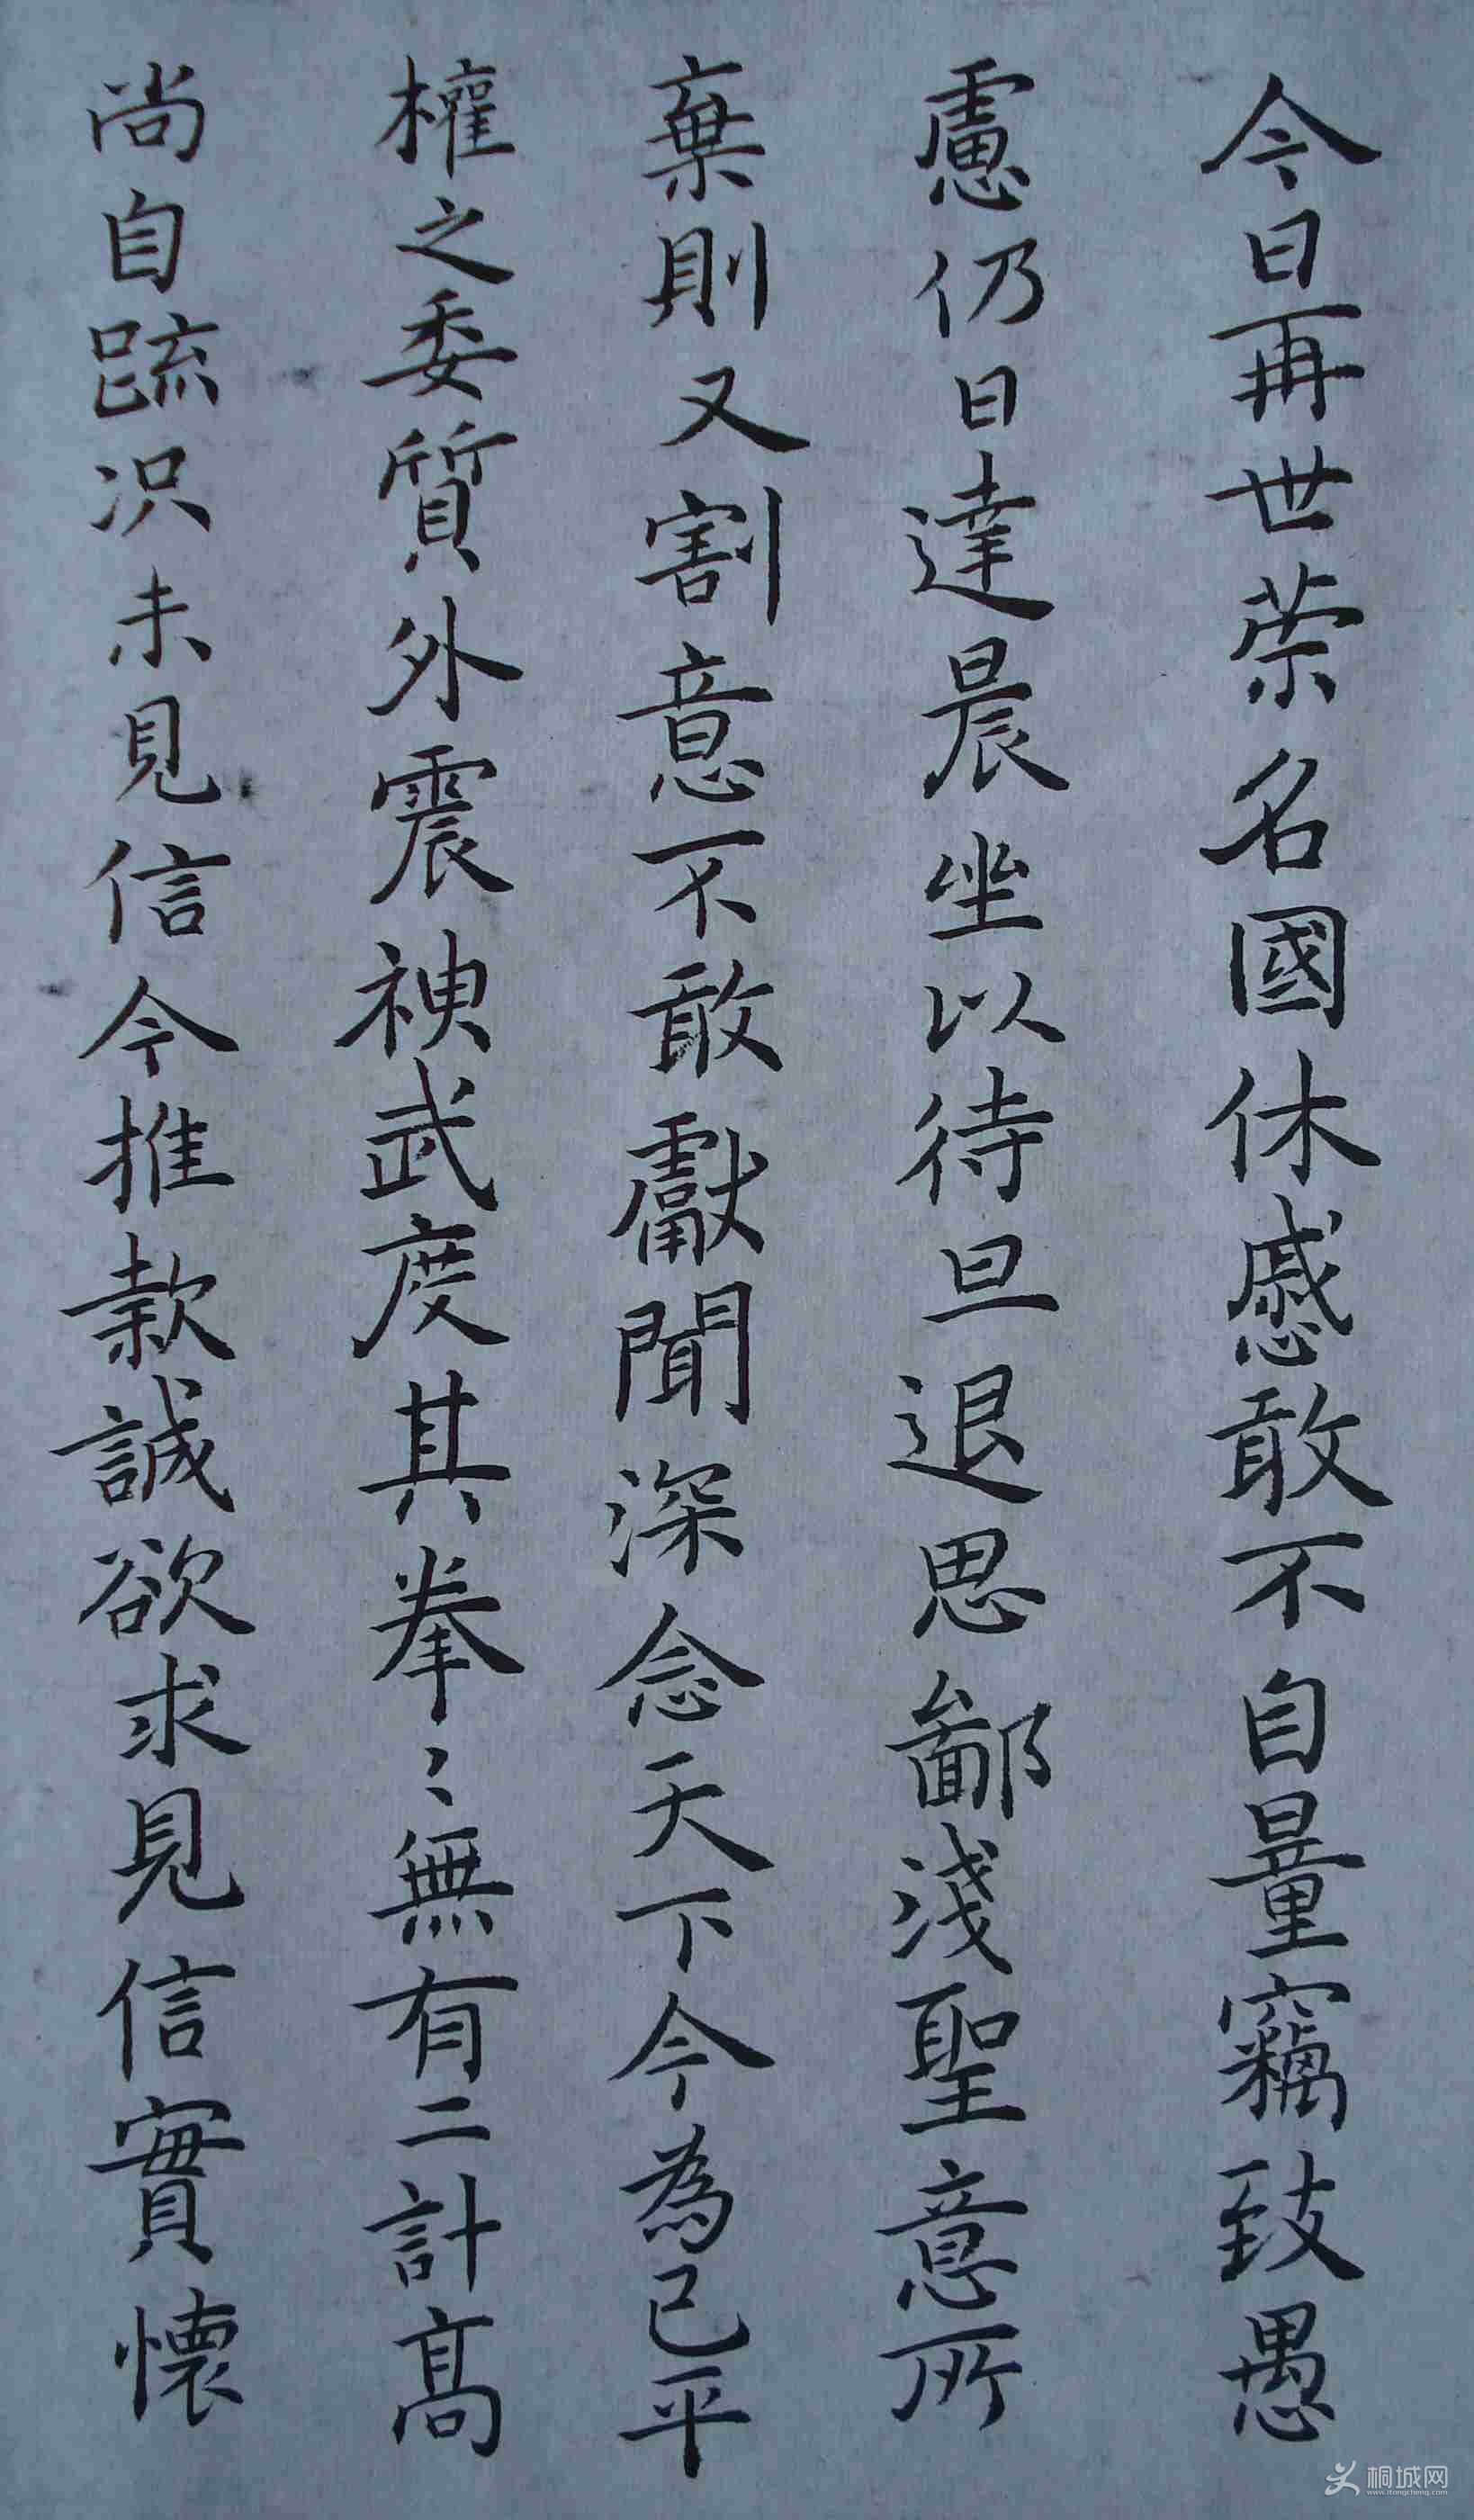 今日再世荣名國休慼敢不自量竊致愚
慮仍日達晨坐以待旦退思鄙淺聖意所
棄則又割意不敢獻聞深念天下今為已平
權之委質外震神武度其拳〻無有二計高
尚自疏况未見信今推款誠欲求見信實懷
桐城网
www.itongcheng.com